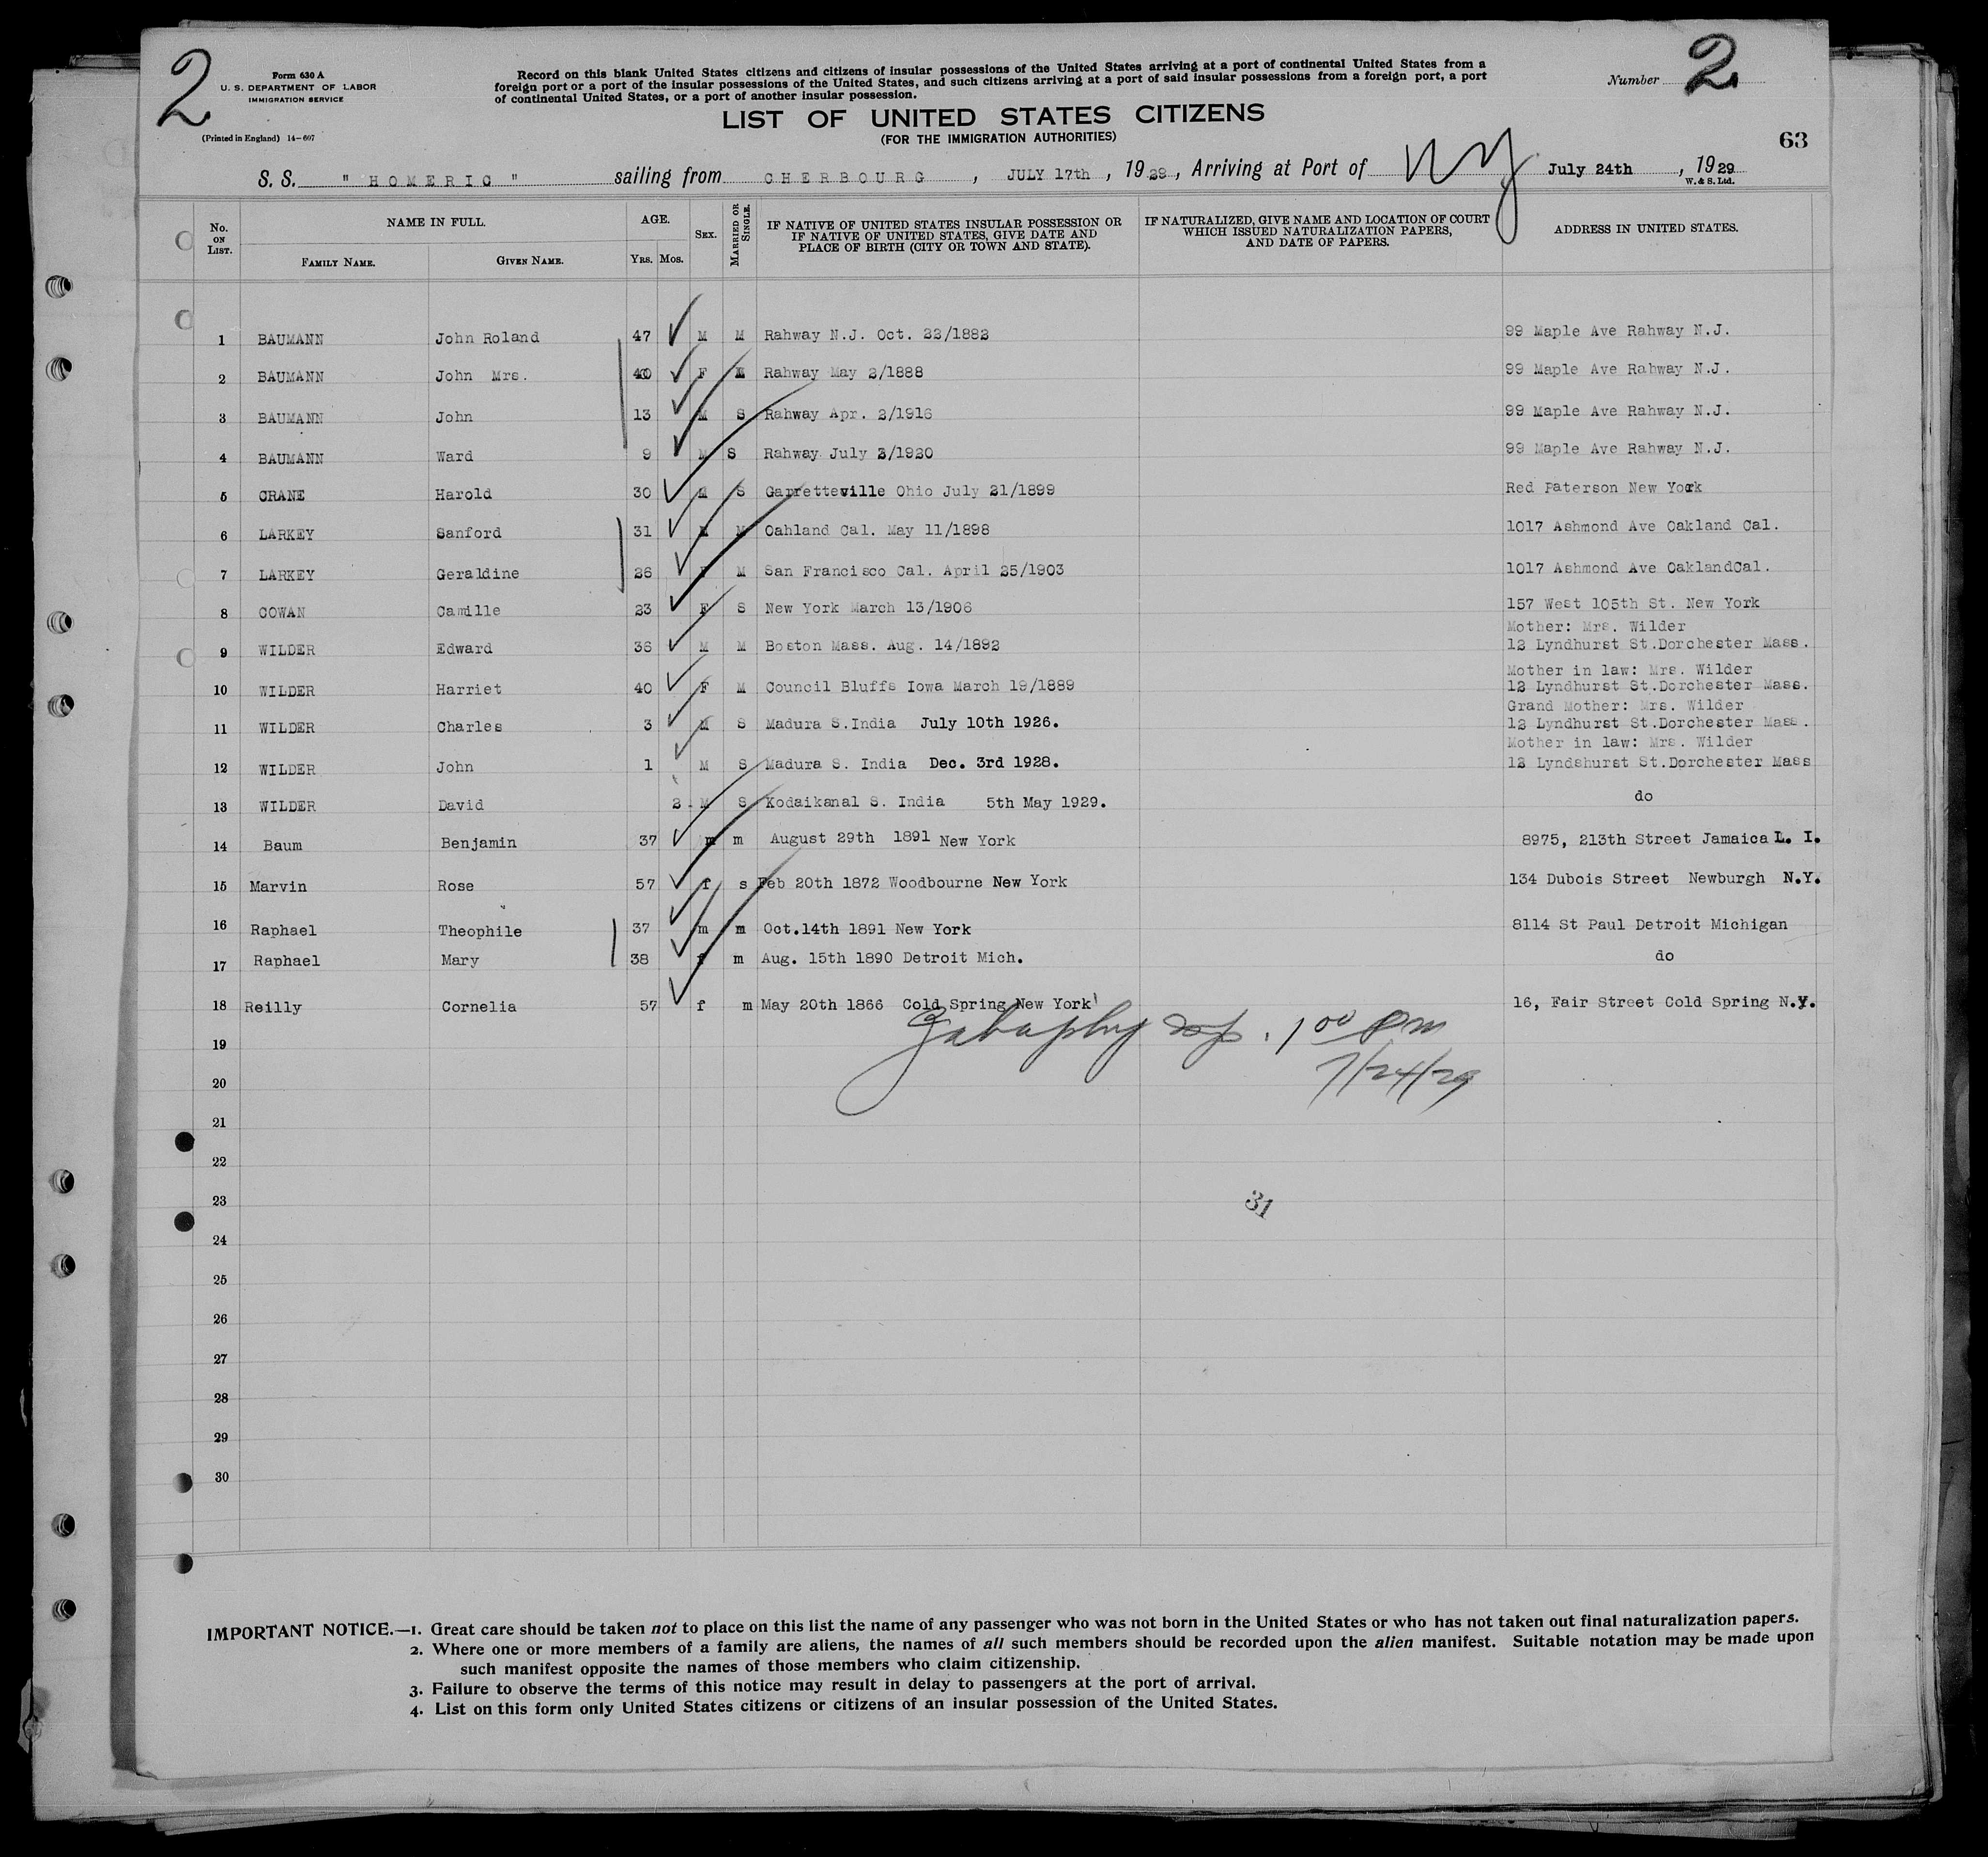 2
Form 630 A
U. S. DEPARTMENT OF LABOR
IMMIGRATION SERVICE
(Printed in England) 14—607
Record on this blank United States citizens and citizens of insular possessions of the United States arriving at a port of continental United States from a
foreign port or a port of the insular possessions of the United States, and such citizens arriving at a port of said insular possessions from a foreign port, a port
of continental United States, or a port of another insular possession.
Number 2
LIST OF UNITED STATES CITIZENS
(FOR THE IMMIGRATION AUTHORITIES)
63
S. S. " HOMERIC " sailing from CHERBOURG , JULY 17th , 1929 , Arriving at Port of NY July 24th , 1929
W. & S. Ltd.
No. ON LIST. NAME IN FULL. AGE. SEX. MARRIED OR SINGLE. IF NATIVE OF UNITED STATES INSULAR POSSESSION OR IF NATIVE OF UNITED STATES, GIVE DATE AND PLACE OF BIRTH (CITY OR TOWN AND STATE). IF NATURALIZED, GIVE NAME AND LOCATION OF COURT WHICH ISSUED NATURALIZATION PAPERS, AND DATE OF PAPERS. ADDRESS IN UNITED STATES.
FAMILY NAME. GIVEN NAME. YRS. MOS.
1 BAUMANN John Roland 47 M M Rahway N.J. Oct. 22/1882 99 Maple Ave Rahway N.J.
2 BAUMANN John Mrs. 40 F Rahway May 2/1888 99 Maple Ave Rahway N.J.
3 BAUMANN John 13 M S Rahway Apr. 2/1916 99 Maple Ave Rahway N.J.
4 BAUMANN Ward 9 M S Rahway July 2/1920 99 Maple Ave Rahway N.J.
5 CRANE Harold 30 M S Garretteville Ohio July 21/1899 Red Paterson New York
6 LARKEY Sanford 31 M M Oahland Cal. May 11/1898 1017 Ashmond Ave Oakland Cal.
7 LARKEY Geraldine 26 F M San Francisco Cal. April 25/1903 1017 Ashmond Ave OaklandCal.
8 COWAN Camille 23 F S New York March 13/1906 157 West 105th St. New York
Mother: Mrs. Wilder
9 WILDER Edward 36 M M Boston Mass. Aug. 14/1892 12 Lyndhurst St.Dorchester Mass.
Mother in law: Mrs. Wilder
10 WILDER Harriet 40 F M Council Bluffs Iowa March 19/1889 12 Lyndhurst St.Dorchester Mass.
Grand Mother: Mrs. Wilder
11 WILDER Charles 3 M S Madura S.India July 10th 1926. 12 Lyndhurst St.Dorchester Mass.
Mother in law: Mrs. Wilder
12 WILDER John 1 M S Madura S. India Dec. 3rd 1928. 12 Lyndshurst St.Dorchester Mass
13 WILDER David 2 M S Kodaikanal S. India 5th May 1929. do
14 Baum Benjamin 37 m m August 29th 1891 New York 8975, 213th Street Jamaica L. I.
15 Marvin Rose 57 f s Feb 20th 1872 Woodbourne New York 134 Dubois Street Newburgh N.Y.
16 Raphael Theophile 37 m m Oct.14th 1891 New York 8114 St Paul Detroit Michigan
17 Raphael Mary 38 f m Aug. 15th 1890 Detroit Mich. do
18 Reilly Cornelia 57 f m May 20th 1866 Cold Spring New York 16, Fair Street Cold Spring N.Y.
19
1 00 PM
20
7/24/29
21
22
23
31
24
25
26
27
28
29
30
IMPORTANT NOTICE.—1. Great care should be taken not to place on this list the name of any passenger who was not born in the United States or who has not taken out final naturalization papers.
2. Where one or more members of a family are aliens, the names of all such members should be recorded upon the alien manifest. Suitable notation may be made upon
such manifest opposite the names of those members who claim citizenship.
3. Failure to observe the terms of this notice may result in delay to passengers at the port of arrival.
4. List on this form only United States citizens or citizens of an insular possession of the United States.